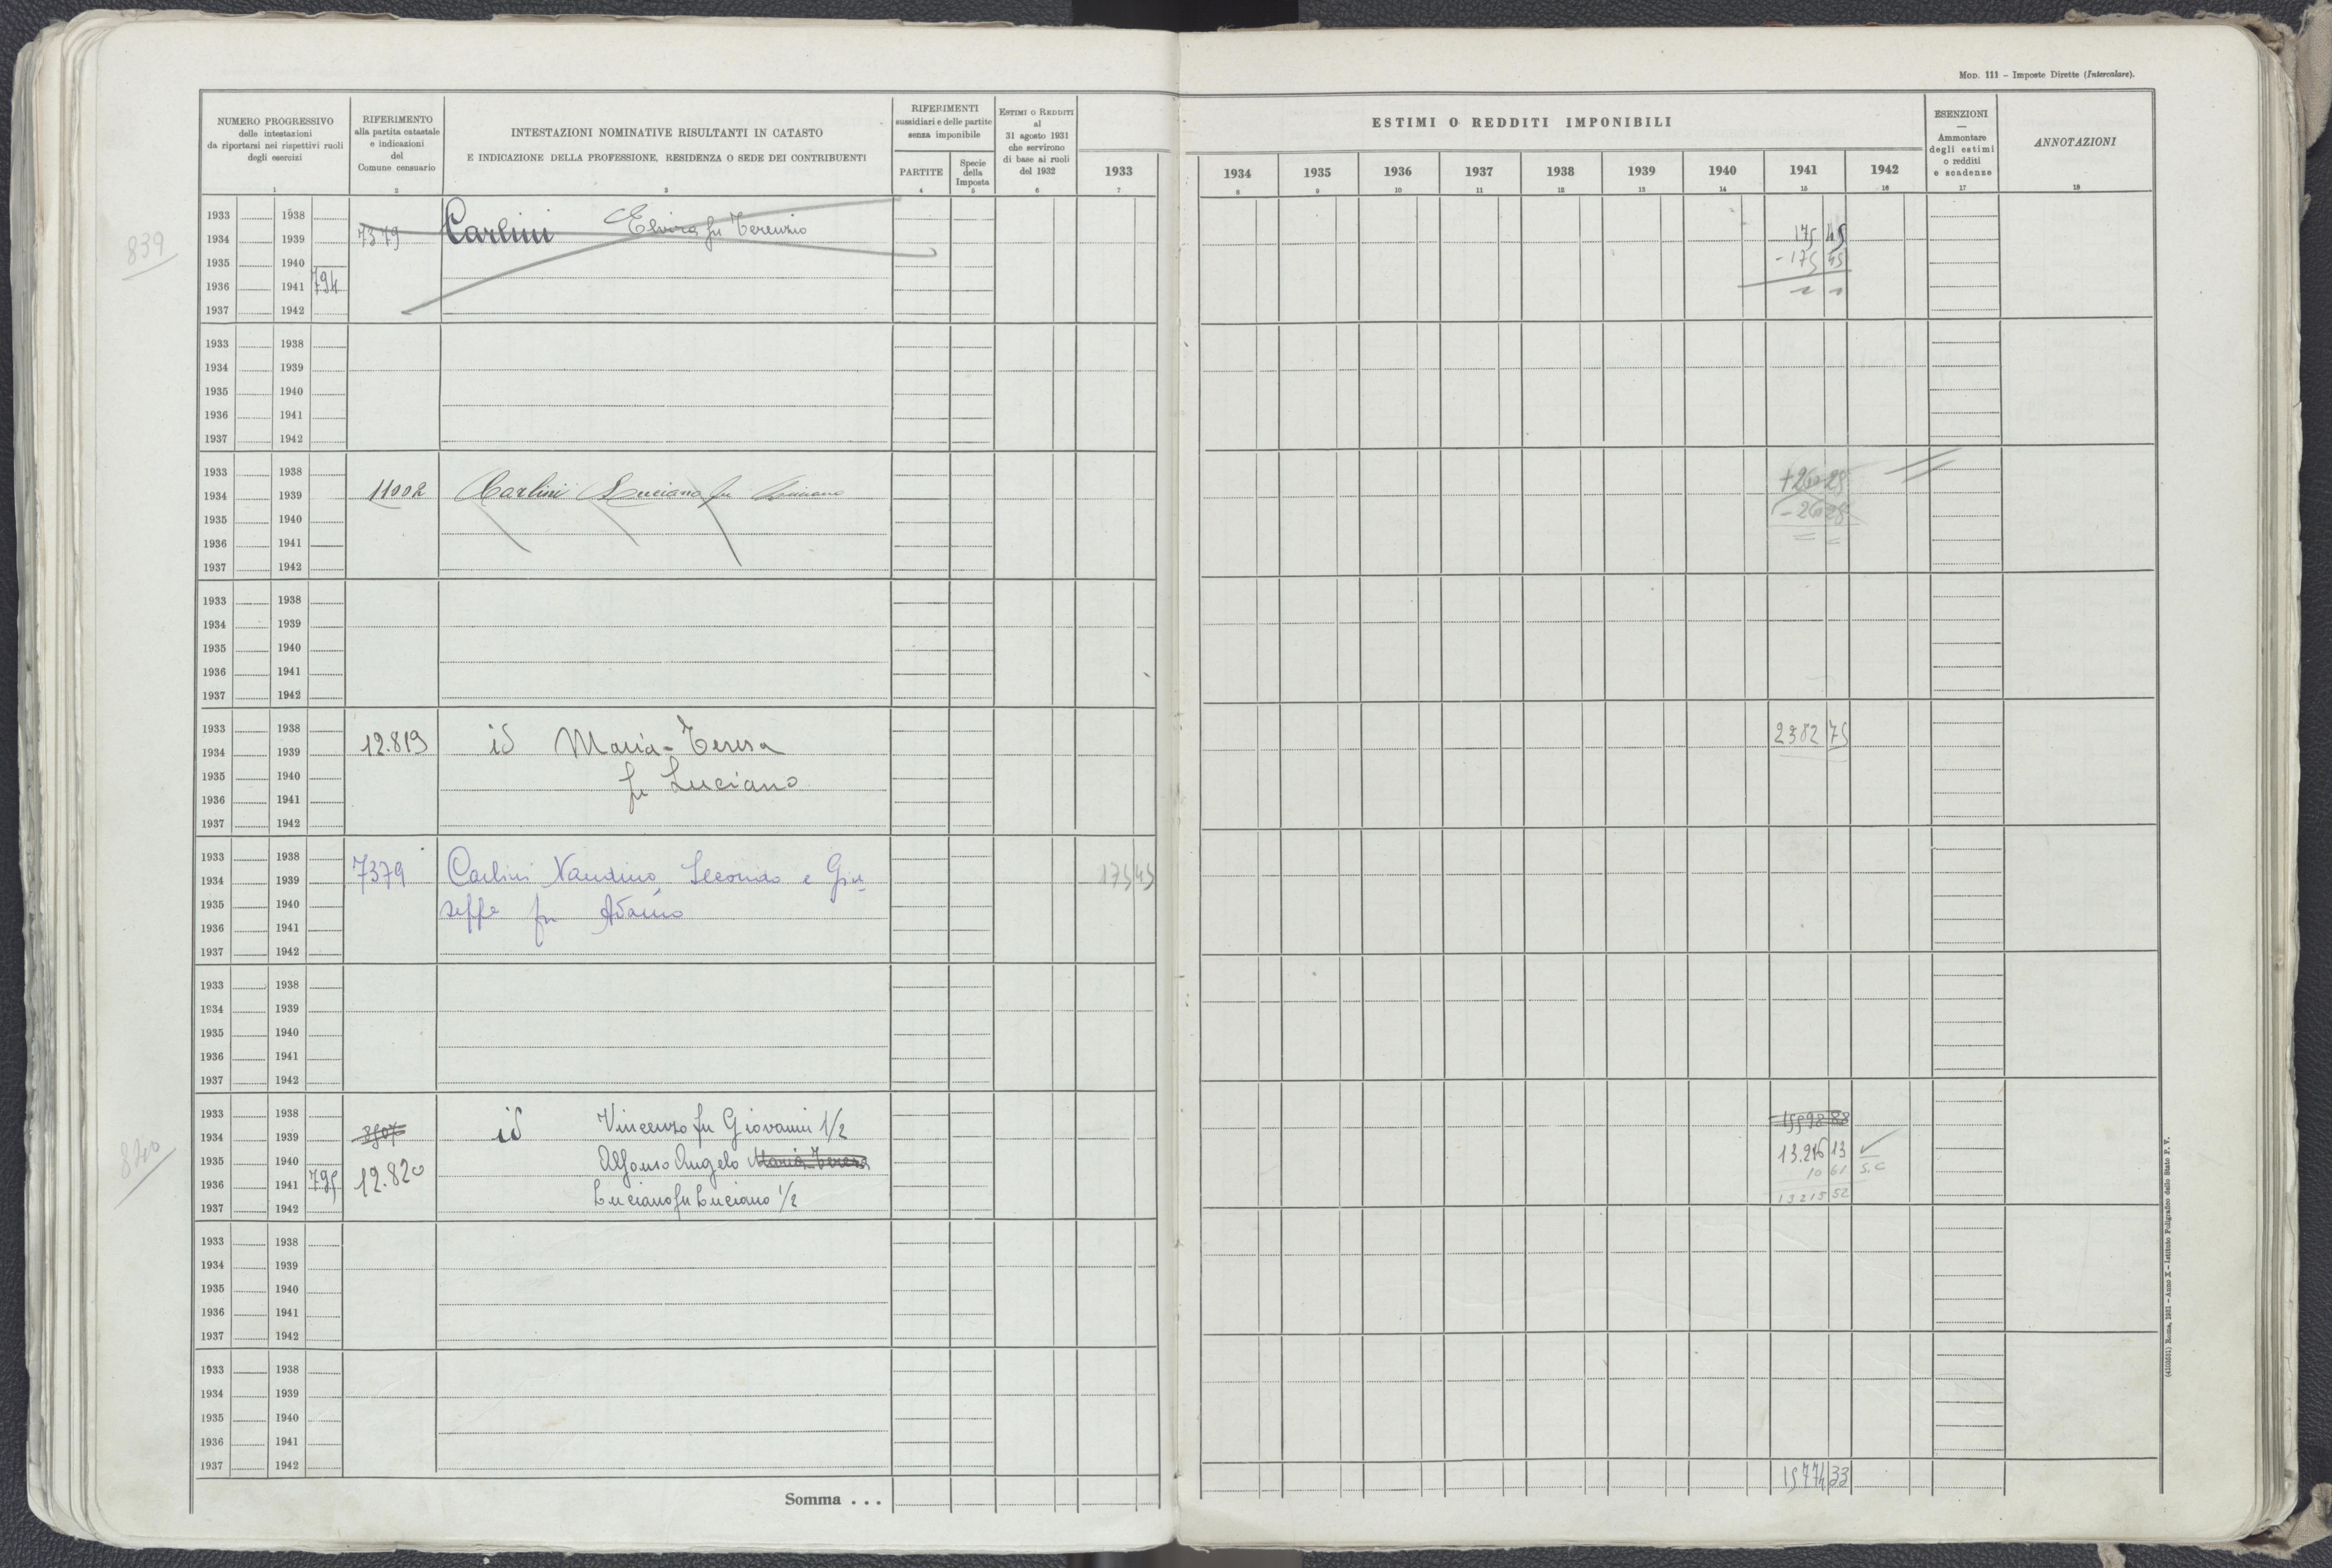 Mod. 111 – Imposte Dirette (Intercalare).
NUMERO PROGRESSIVO
delle intestazioni
da riportarsi nei rispettivi ruoli
degli esercizi
1
RIFERIMENTO
alla partita catastale
e indicazioni
del
Comune censuario
2
INTESTAZIONI NOMINATIVE RISULTANTI IN CATASTO
E INDICAZIONE DELLA PROFESSIONE, RESIDENZA O SEDE DEI CONTRIBUENTI
3
RIFERIMENTI
sussidiari e delle partite
senza imponibile
PARTITE
4
Specie
della
Imposta
5
ESTIMI O REDDITI
al
31 agosto 1931
che servirono
di base ai ruoli
del 1932
6
ESTIMI O REDDITI IMPONIBILI
1933 1934 1935 1936 1937 1938 1939 1940 1941 1942
7 8 9 10 11 12 13 14 15 16
ESENZIONI
—
Ammontare
degli estimi
o redditi
e scadenze
17
ANNOTAZIONI
18
839
1933 1938
1934 1939 7379 Carlini Elvira fu Terenzio 175 45
1935 1940 - 175 45
1936 1941 794
1937 1942
1933 1938
1934 1939
1935 1940
1936 1941
1937 1942
1933 1938 + 26 28
1934 1939 11002 Carlini Luciano fu Luciano
1935 1940 - 26 28
1936 1941
1937 1942
1933 1938
1934 1939
1935 1940
1936 1941
1937 1942
1933 1938
1934 1939 12.819 id Maria-Teresa 2382 75
1935 1940 fu Luciano
1936 1941
1937 1942
1933 1938
1934 1939 7379 Carlini Nandino, Secondo e Giu- 175 45
1935 1940 seppe fu Adamo
1936 1941
1937 1942
1933 1938
1934 1939
1935 1940
1936 1941
1937 1942
840
1933 1938 15598 88
1934 1939 3507 id Vincenzo fu Giovanni 1/2
1935 1940 Alfonso Angelo Maria-Teresa 13.216 13
1936 1941 795 12.820 10 61 S.C
1937 1942 Luciano fu Luciano 1/2 13215 52
1933 1938
1934 1939
1935 1940
1936 1941
1937 1942
1933 1938
1934 1939
1935 1940
1936 1941
1937 1942
Somma . . . 15774 33
(4102631) Roma, 1931 – Anno X – Istituto Poligrafico dello Stato P. V.